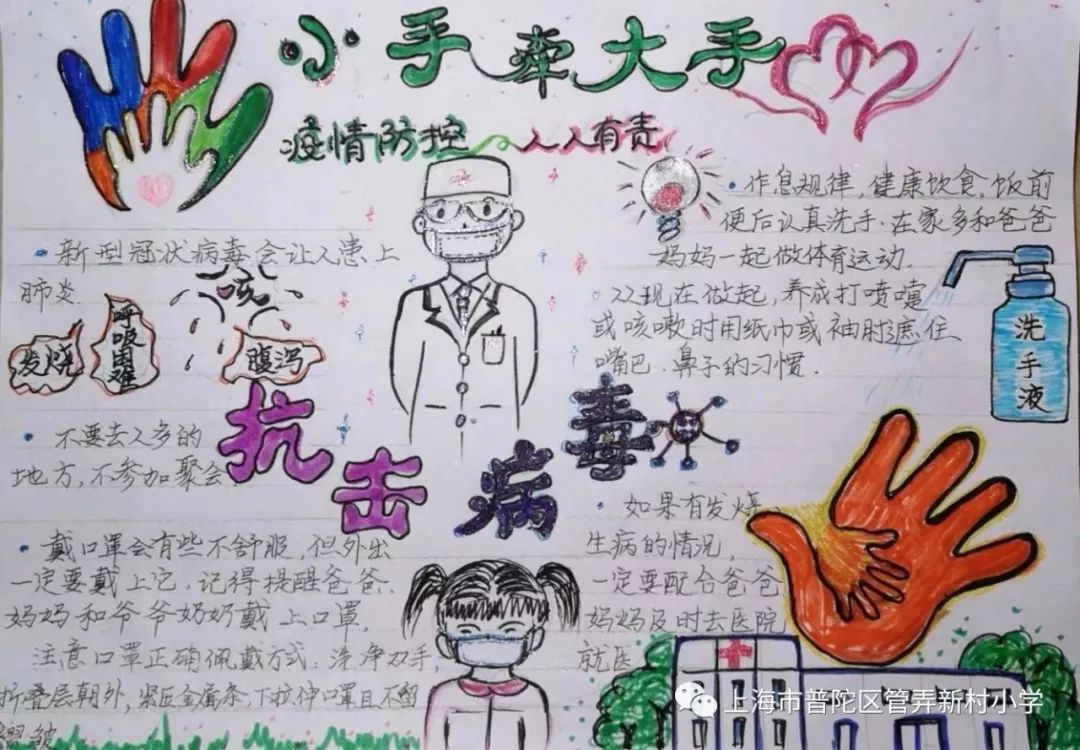 小手牵大手
疫情防控 人人有责
新型冠状病毒会让人患上
肺炎
发烧
呼吸困难
咳
腹泻
不要去人多的
地方,不参加聚会
戴口罩会有些不舒服,但外出
一定要戴上它,记得提醒爸爸、
妈妈和爷爷奶奶戴上口罩,
注意口罩正确佩戴方式:洗净双手,
折叠层朝外,紧压金属条,下拉伸口罩且不留
褶皱
抗击病毒
作息规律,健康饮食,饭前
便后认真洗手.在家多和爸爸
妈妈一起做体育运动.
从现在做起,养成打喷嚏
或咳嗽时用纸巾或袖肘遮住
嘴巴、鼻子的习惯.
洗手液
如果有发烧
生病的情况,
一定要配合爸爸
妈妈及时去医院
就医
上海市普陀区管弄新村小学